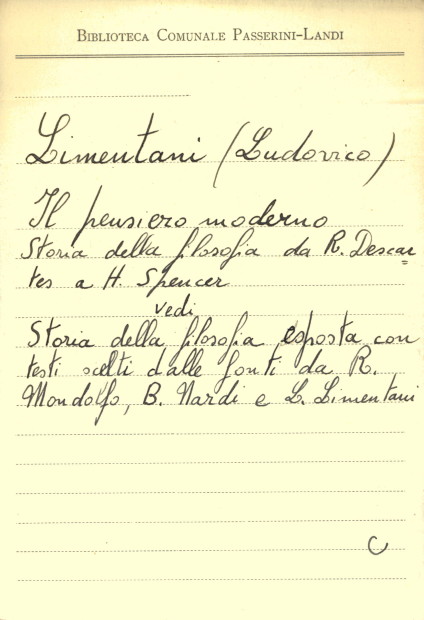 Biblioteca Comunale Passerini-Landi
Limentani (Ludovico)
Il pensiero moderno
Storia della filosofia da R. Descar=
tes a H. Spencer
vedi
Storia della filosofia esposta con
testi scelti dalle fonti da R.
Mondolfo, B. Nardi e L. Limentani
C